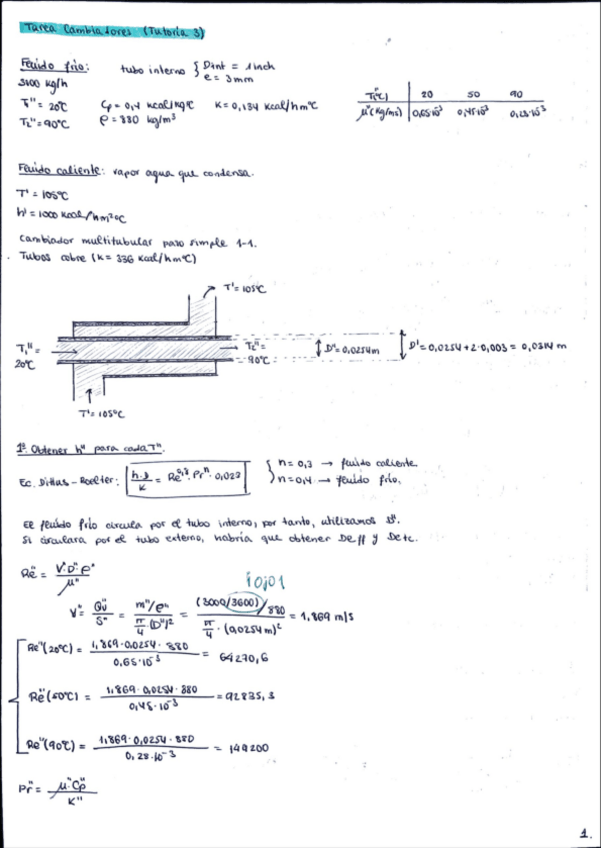 Tarea Cambiadores (Tutoría 3)
Fluido frío: tubo interno { Dint = 1 inch
e = 3mm
kg/h
T₁" = 20ºC Cp = 0,4 kcal/kgºC K = 0,134 kcal/hmºC
T₂" = 90ºC ρ = 880 kg/m³
T(ºC) 20 50 90
μ"(kg/ms) 0,65·10⁻³ 0,45·10⁻³ 0,28·10⁻³
Fluido caliente: vapor agua que condensa.
T' = 105ºC
h' = 1000 kcal/hm²ºC
Cambiador multitubular paso simple 1-1.
Tubos cobre (k = 336 kcal/hmºC)
T' = 105ºC
T₁" = 20ºC
T₂" = 90ºC
D" = 0,0254m
D' = 0,0254 + 2·0,003 = 0,0314 m
T' = 105ºC
1º Obtener h" para cada T".
Ec. Dittus-Boelter: h·D/K = Re^0,8 · Pr^n · 0,023 { n = 0,3 → fluido caliente.
n = 0,4 → fluido frío.
El fluido frío circula por el tubo interno, por tanto, utilizamos D".
Si circulara por el tubo externo, habría que obtener Deff y Detc.
Re" = V"·D"·ρ"/μ"
¡ojo!
V" = Qv"/S" = (m"/ρ")/(π/4·(D")²) = ((3000/3600)/880)/(π/4·(0,0254m)²) = 1,869 m/s
Re"(20ºC) = 1,869·0,0254·880/0,65·10⁻³ = 64270,6
Re"(50ºC) = 1,869·0,0254·880/0,45·10⁻³ = 92835,3
Re"(90ºC) = 1,869·0,0254·880/0,28·10⁻³ = 149200
Pr" = μ"·Cp"/K"
1.